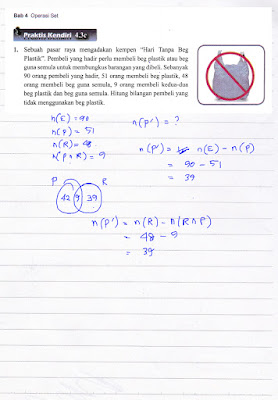 Bab 4 Operasi Set
Praktis Kendiri 4.3c
1. Sebuah pasar raya mengadakan kempen "Hari Tanpa Beg
Plastik". Pembeli yang hadir perlu membeli beg plastik atau beg
guna semula untuk membungkus barangan yang dibeli. Sebanyak
90 orang pembeli yang hadir, 51 orang membeli beg plastik, 48
orang membeli beg guna semula, 9 orang membeli kedua-dua
beg plastik dan beg guna semula. Hitung bilangan pembeli yang
tidak menggunakan beg plastik.
n(E) = 90
n(P) = 51
n(R) = 48
n(P∩R) = 9
n(P') = ?
n(P') = n(E) - n(P)
= 90 - 51
= 39
P R
42 9 39
n(P') = n(R) - n(R∩P)
= 48 - 9
= 39